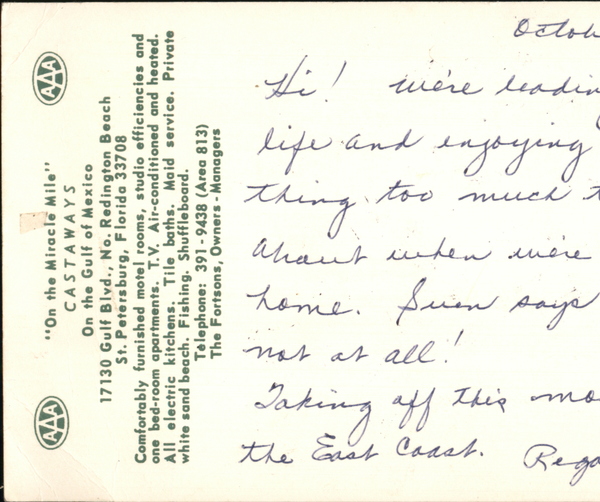 AAA
AAA
"On the Miracle Mile"
CASTAWAYS
On the Gulf of Mexico
17130 Gulf Blvd., No. Redington Beach
St. Petersburg, Florida 33708
Comfortably furnished motel rooms, studio efficiencies and
one bed-room apartments. T.V. Air-conditioned and heated.
All electric kitchens. Tile baths. Maid service. Private
white sand beach. Fishing. Shuffleboard.
Telephone: 391-9438 (Area 813)
The Fortsons, Owners-Managers
Octob
Hi! We're leadin
life and enjoying
thing too much t
about when we're
home. Suen says
not at all!
Taking off this mo
the East Coast. Rega